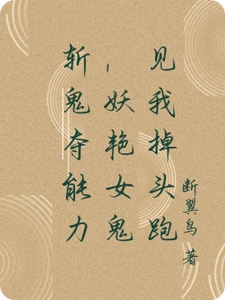 斩鬼夺能力
，妖艳女鬼
见我掉头跑
断翼鸟 著